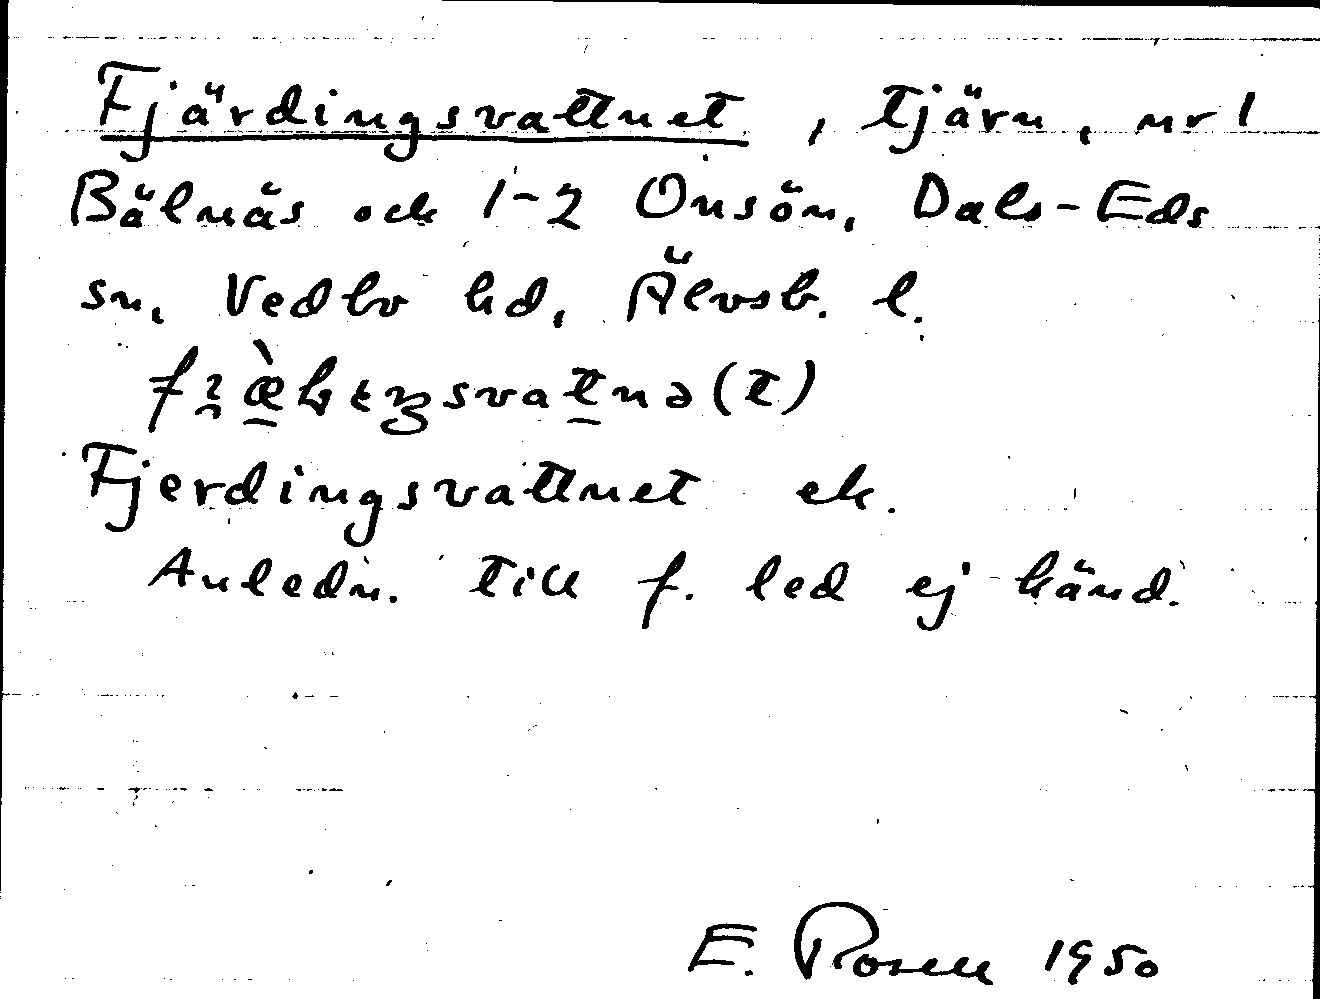 Fjärdingsvattnet, tjärn, nr 1
Bälnäs och 1-2 Onsön, Dals-Eds
sn, Vedbo hd, Älvsb. l.
Fjerdingsvattnet ek.
Anledn. till f. led ej känd.
E. Rosell 1950